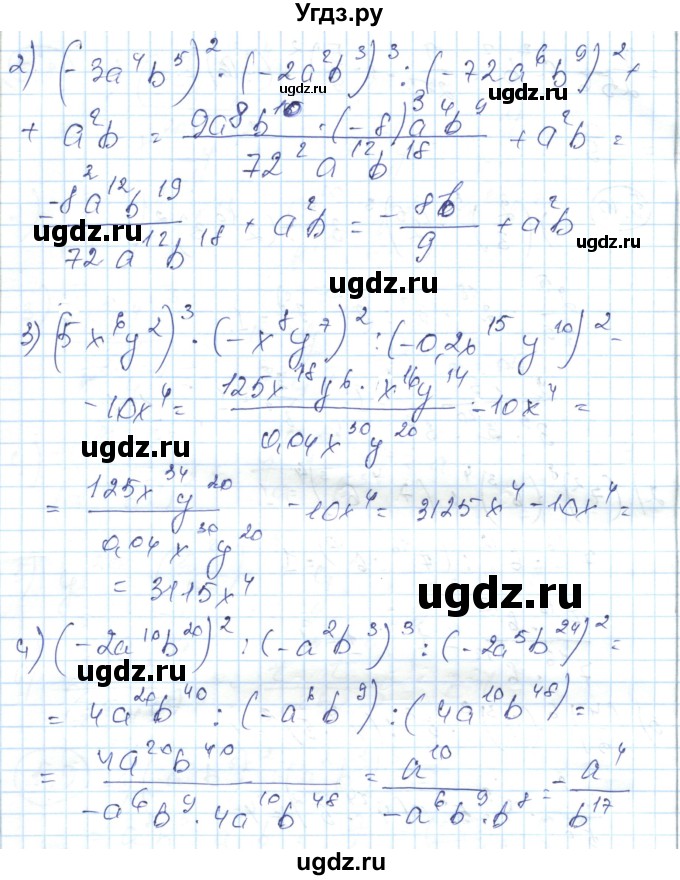 Угдз.ру
2) (-3a⁴b⁵)² · (-2a²b³)³ : (-72a⁶b⁹)² +
+ a²b = 9a⁸b¹⁰ · (-8)a⁶b⁹ / 72²a¹²b¹⁸ + a²b =
ugdz.ru
= -8a¹²b¹⁹ / 72a¹²b¹⁸ + a²b = - 8b / 9 + a²b
ugdz.ru ugdz.ru
ugdz.ru
3) (5x⁶y²)³ · (-x⁸y⁷)² : (-0,2x¹⁵y¹⁰)² -
- 10x⁴ = 125x¹⁸y⁶ · x¹⁶y¹⁴ / 0,04x³⁰y²⁰ - 10x⁴ =
ugdz.ru
= 125x³⁴y²⁰ / 0,04x³⁰y²⁰ - 10x⁴ = 3125x⁴ - 10x⁴ =
= 3115x⁴
ugdz.ru
4) (-2a¹⁰b²⁰)² : (-a²b³)³ : (-2a⁵b²⁴)² =
ugdz.ru
= 4a²⁰b⁴⁰ : (-a⁶b⁹) : (4a¹⁰b⁴⁸) =
= 4a²⁰b⁴⁰ / -a⁶b⁹ · 4a¹⁰b⁴⁸ = a¹⁰ / -a⁶b⁹ · b⁸ = - a⁴ / b¹⁷
ugdz.ru
ugdz.ru